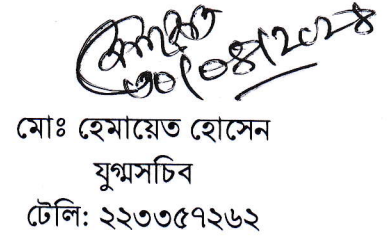 ৩০/০৪/২০২৪
মোঃ হেমায়েত হোসেন
যুগ্মসচিব
টেলি: ২২৩৩৫৭২৬২